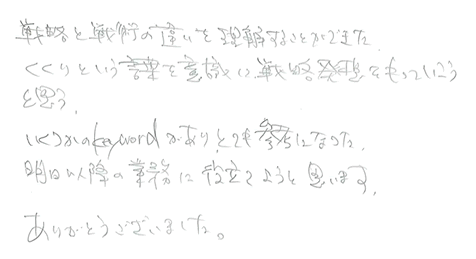 戦略と戦術の違いを理解することができました
くくりという言葉を意識し戦略発想をもっていこう
と思う。
いくつかのkeywordがありとても参考になった。
明日以降の業務に役立てようと思います。
ありがとうございました。